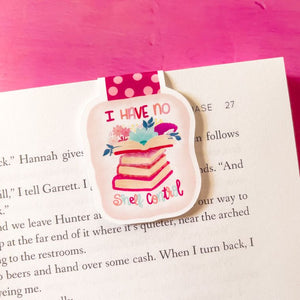 I HAVE NO
Shelf Control
ASE 27
ck." Hannah gives
follows
ll," I tell Garrett. I
ds. "And
nd we leave Hunter a
our way to
up at the far end of it where it's quieter, near the arched
g to the restrooms.
o beers and hand over some cash. When I turn back, I
eyeing me.